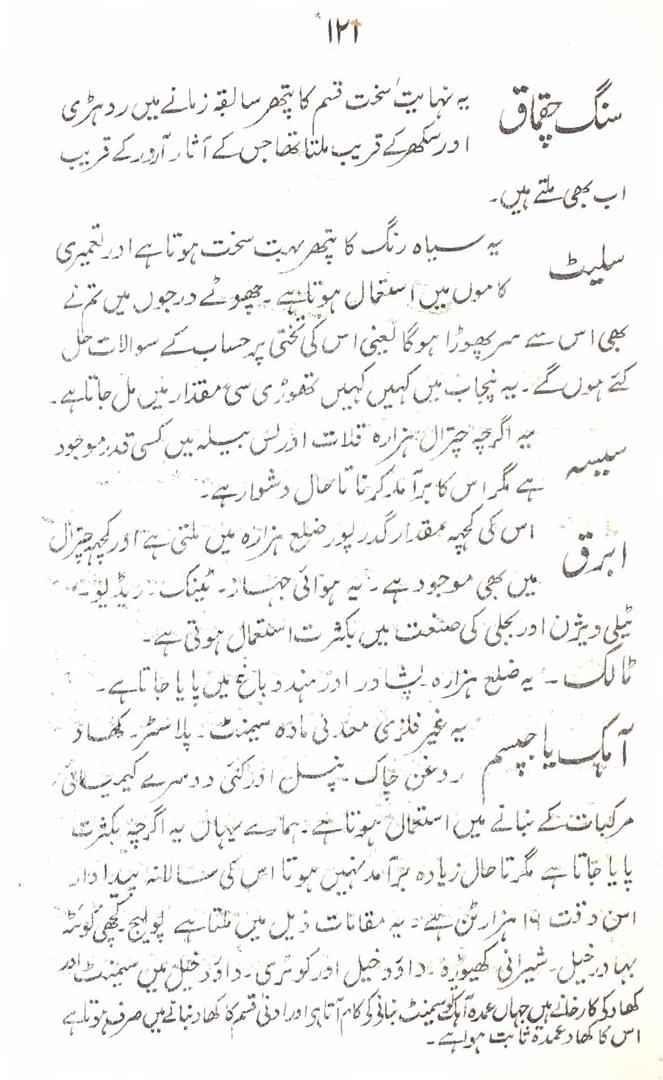 ۱۲۱
سنگ چقماق یہ نہایت سخت قسم کا پتھر سابقہ زمانے میں روہڑی
اور سکھر کے قریب ملتا تھا جس کے آثار آرور کے قریب
اب بھی ملتے ہیں۔
سلیٹ یہ سیاہ رنگ کا پتھر بہت سخت ہوتا ہے اور تعمیری
کاموں میں استعمال ہوتا ہے۔ چھوٹے درجوں میں تم نے
بھی اس سے سر پھوڑا ہوگا یعنی اس کی تختی پر حساب کے سوالات حل
کئے ہوں گے۔ یہ پنجاب میں کہیں کہیں تھوڑی سی مقدار میں مل جاتا ہے۔
سیسہ یہ اگرچہ چترال ہزارہ قلات اور لس بیلہ میں کسی قدر موجود
ہے مگر اس کا برآمد کرنا تا حال دشوار ہے۔
ابرق اس کی کچھ مقدار گدرپور ضلع ہزارہ میں ملتی ہے اور کچھ چترال
میں بھی موجود ہے۔ یہ ہوائی جہاز۔ ٹینک۔ ریڈیو۔
ٹیلی ویژن اور بجلی کی صنعت میں بکثرت استعمال ہوتی ہے۔
ٹالک۔ یہ ضلع ہزارہ۔ پشاور اور مندد باغ میں پایا جاتا ہے۔
آہک یا جپسم یہ غیر فلزی معدنی مادہ سیمنٹ۔ پلاسٹر۔ کھاد
روغن چاک۔ پنسل اور کئی دوسرے کیمیائی
مرکبات کے بنانے میں استعمال ہوتا ہے۔ ہمارے یہاں یہ اگرچہ بکثرت
پایا جاتا ہے مگر تا حال زیادہ برآمد نہیں ہوتا اس کی سالانہ پیداوار
اس وقت ۱۶ ہزار ٹن ہے۔ یہ مقامات ذیل میں ملتا ہے۔ کچھی کوئٹہ
بہادر خیل۔ شیرانی کھیوڑہ۔ داؤد خیل اور کوٹری۔ داؤد خیل میں سیمنٹ اور
کھاد کی کارخانے ہیں جہاں عمدہ آہک کو سیمنٹ بنانی کی کام آتا ہی اور ادنی قسم کا کھاد بنانے میں صرف ہوتا ہے
اس کا کھاد عمدہ ثابت ہوا ہے۔